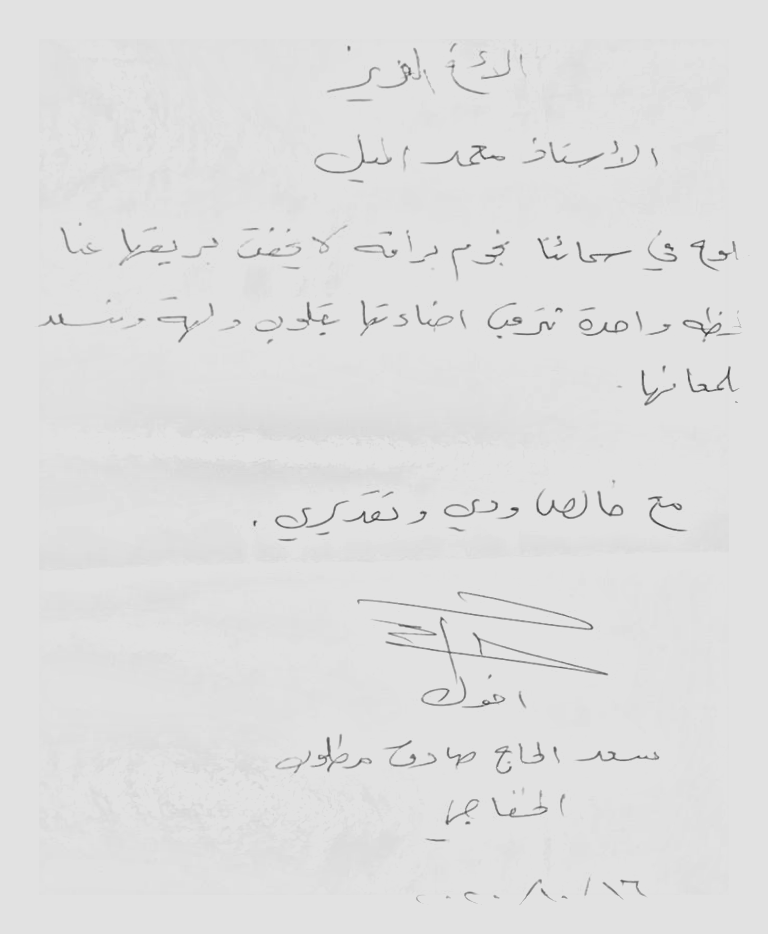 الأخ العزيز
الأستاذ محمد الميل
في سمائنا نجوم براقه لا يخفت بريقها عنا
واحدة نترقب اضاءتها بقلوب ولهة ونسعد
بلمعانها .
مع خالص ودي وتقديري .
اخوك
سعد الحاج صادق مطلوب
الخفاجي
٢٠٢٠/١٠/١٦